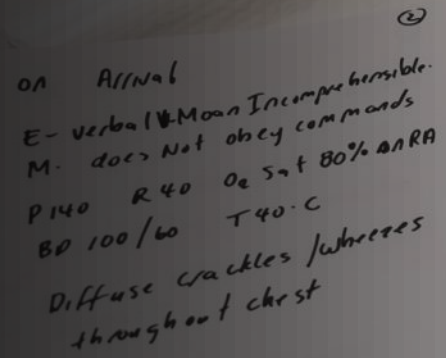 2
on Arrival
E- verbal V-Moan Incomprehensible.
M. does Not obey commands
P 140 R 40 O2 Sat 80% on RA
BP 100/60 T 40.C
Diffuse crackles /wheezes
throughout chest